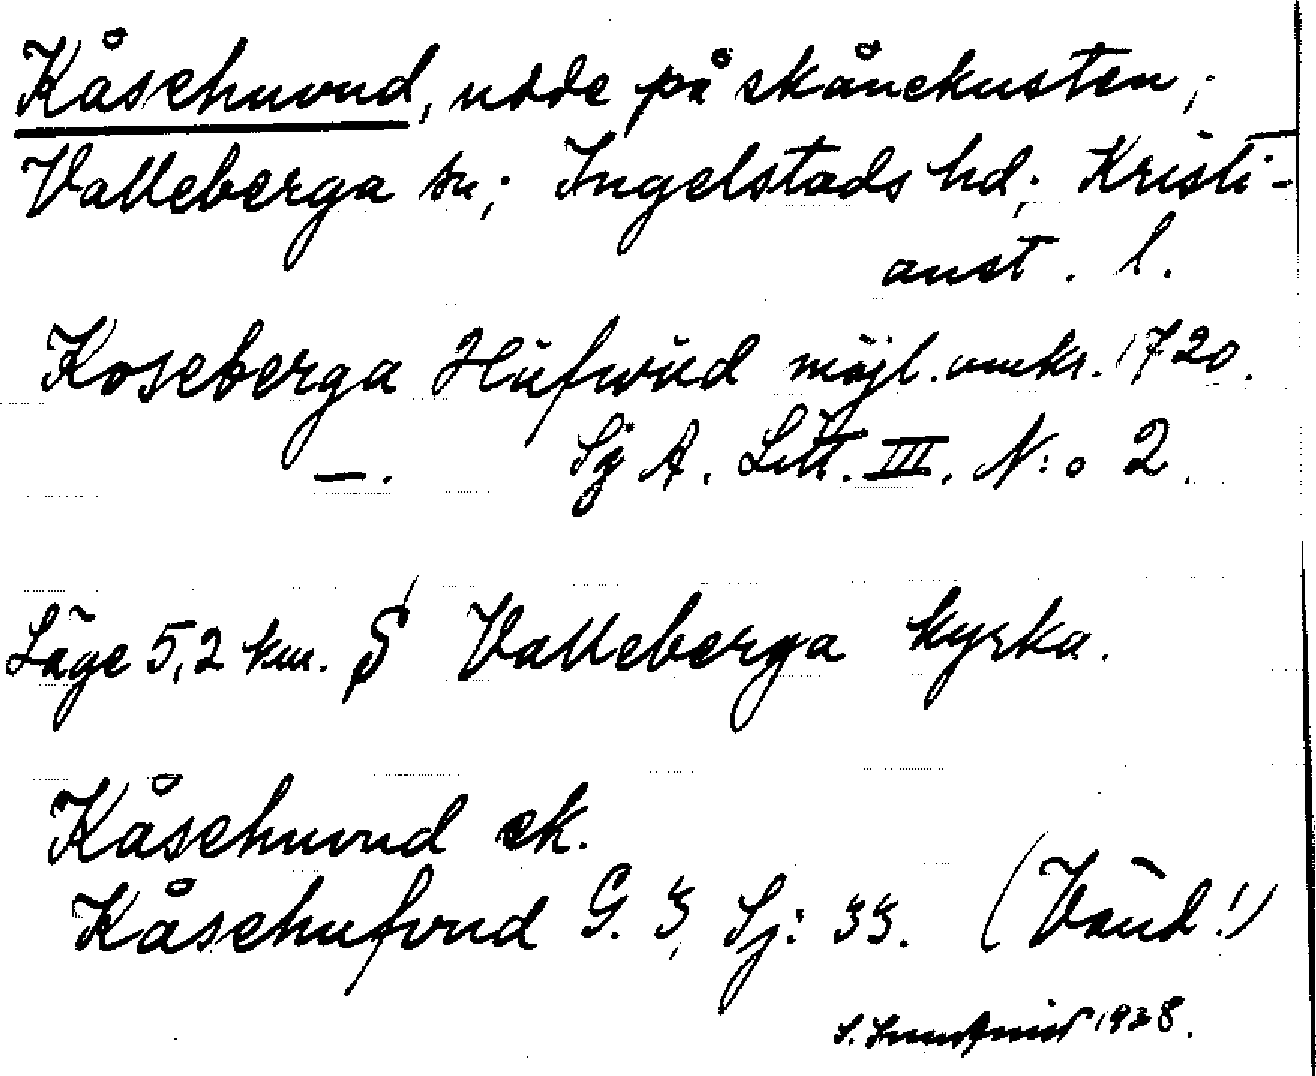 Kåsehuvud, udde på skånekusten;
Valleberga sn; Ingelstads hd; Kristi-
anst. l.
Koseberga Hüfwüd möjl. omkr. 1720.
—. Sj A. Litt. III. N:o 2.
Läge 5,2 km. S Valleberga kyrka.
Kåsehuvud ek.
Kåsehufvud G. 5, Sj: 35. (Vänd!)
S. 1928.